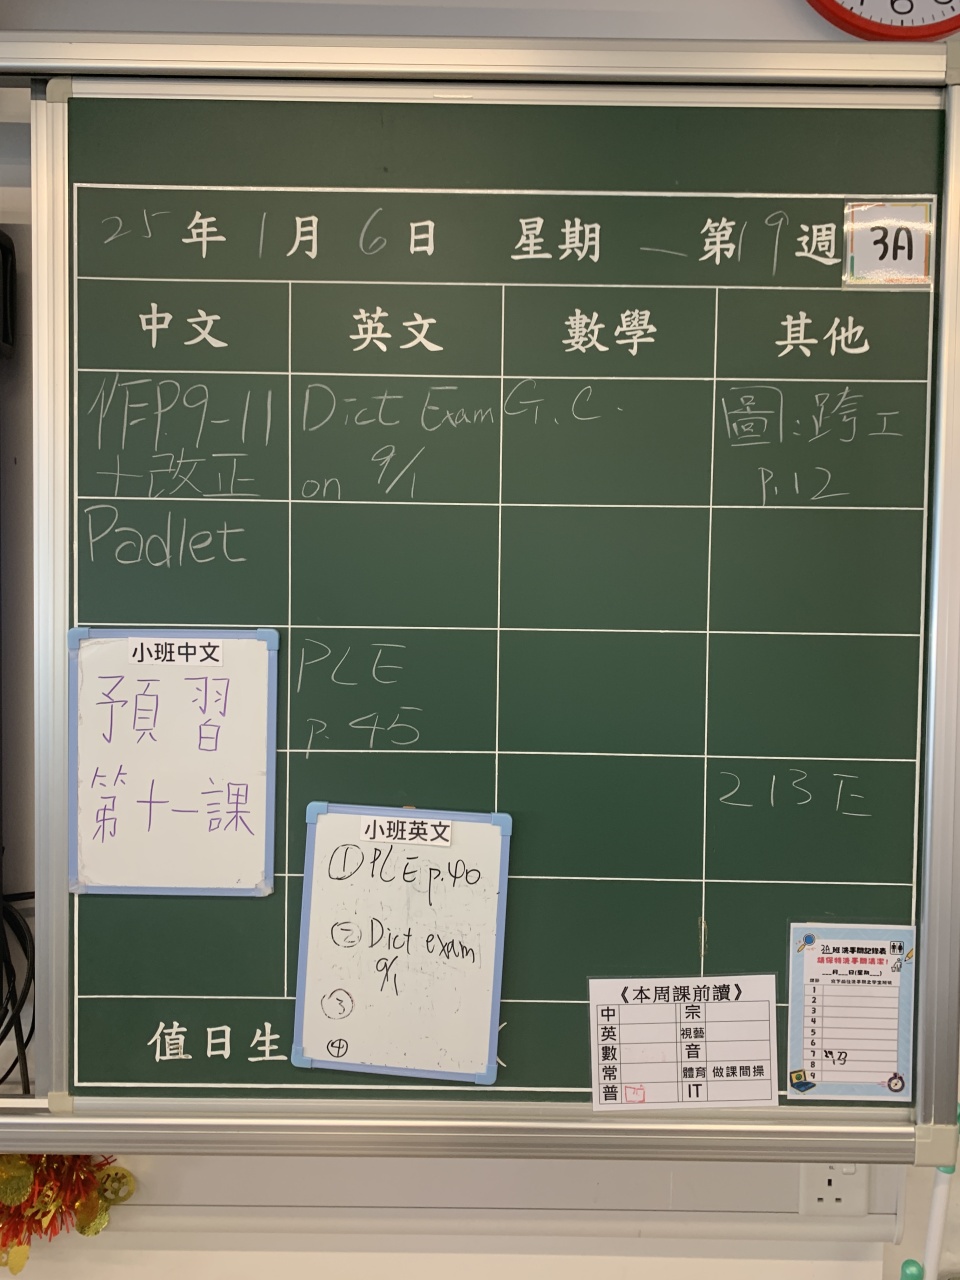 25年1月6日 星期一 第19週 3A
中文 英文 數學 其他
作P.9-11
+改正
Dict Exam
on 9/1
G.C.
圖:跨工
P.12
Padlet
PLE
p.45
213E
小班中文
預習
第十一課
小班英文
① PLE p.40
② Dict exam
9/1
③
④
值日生
《本周課前讀》
中 宗
英 視藝
數 音
常 體育 做課間操
普 IT
3A班洗手間記錄表
請保持洗手間清潔!
___月___日(星期___)
1
2
3
4
5
6
7
8
9